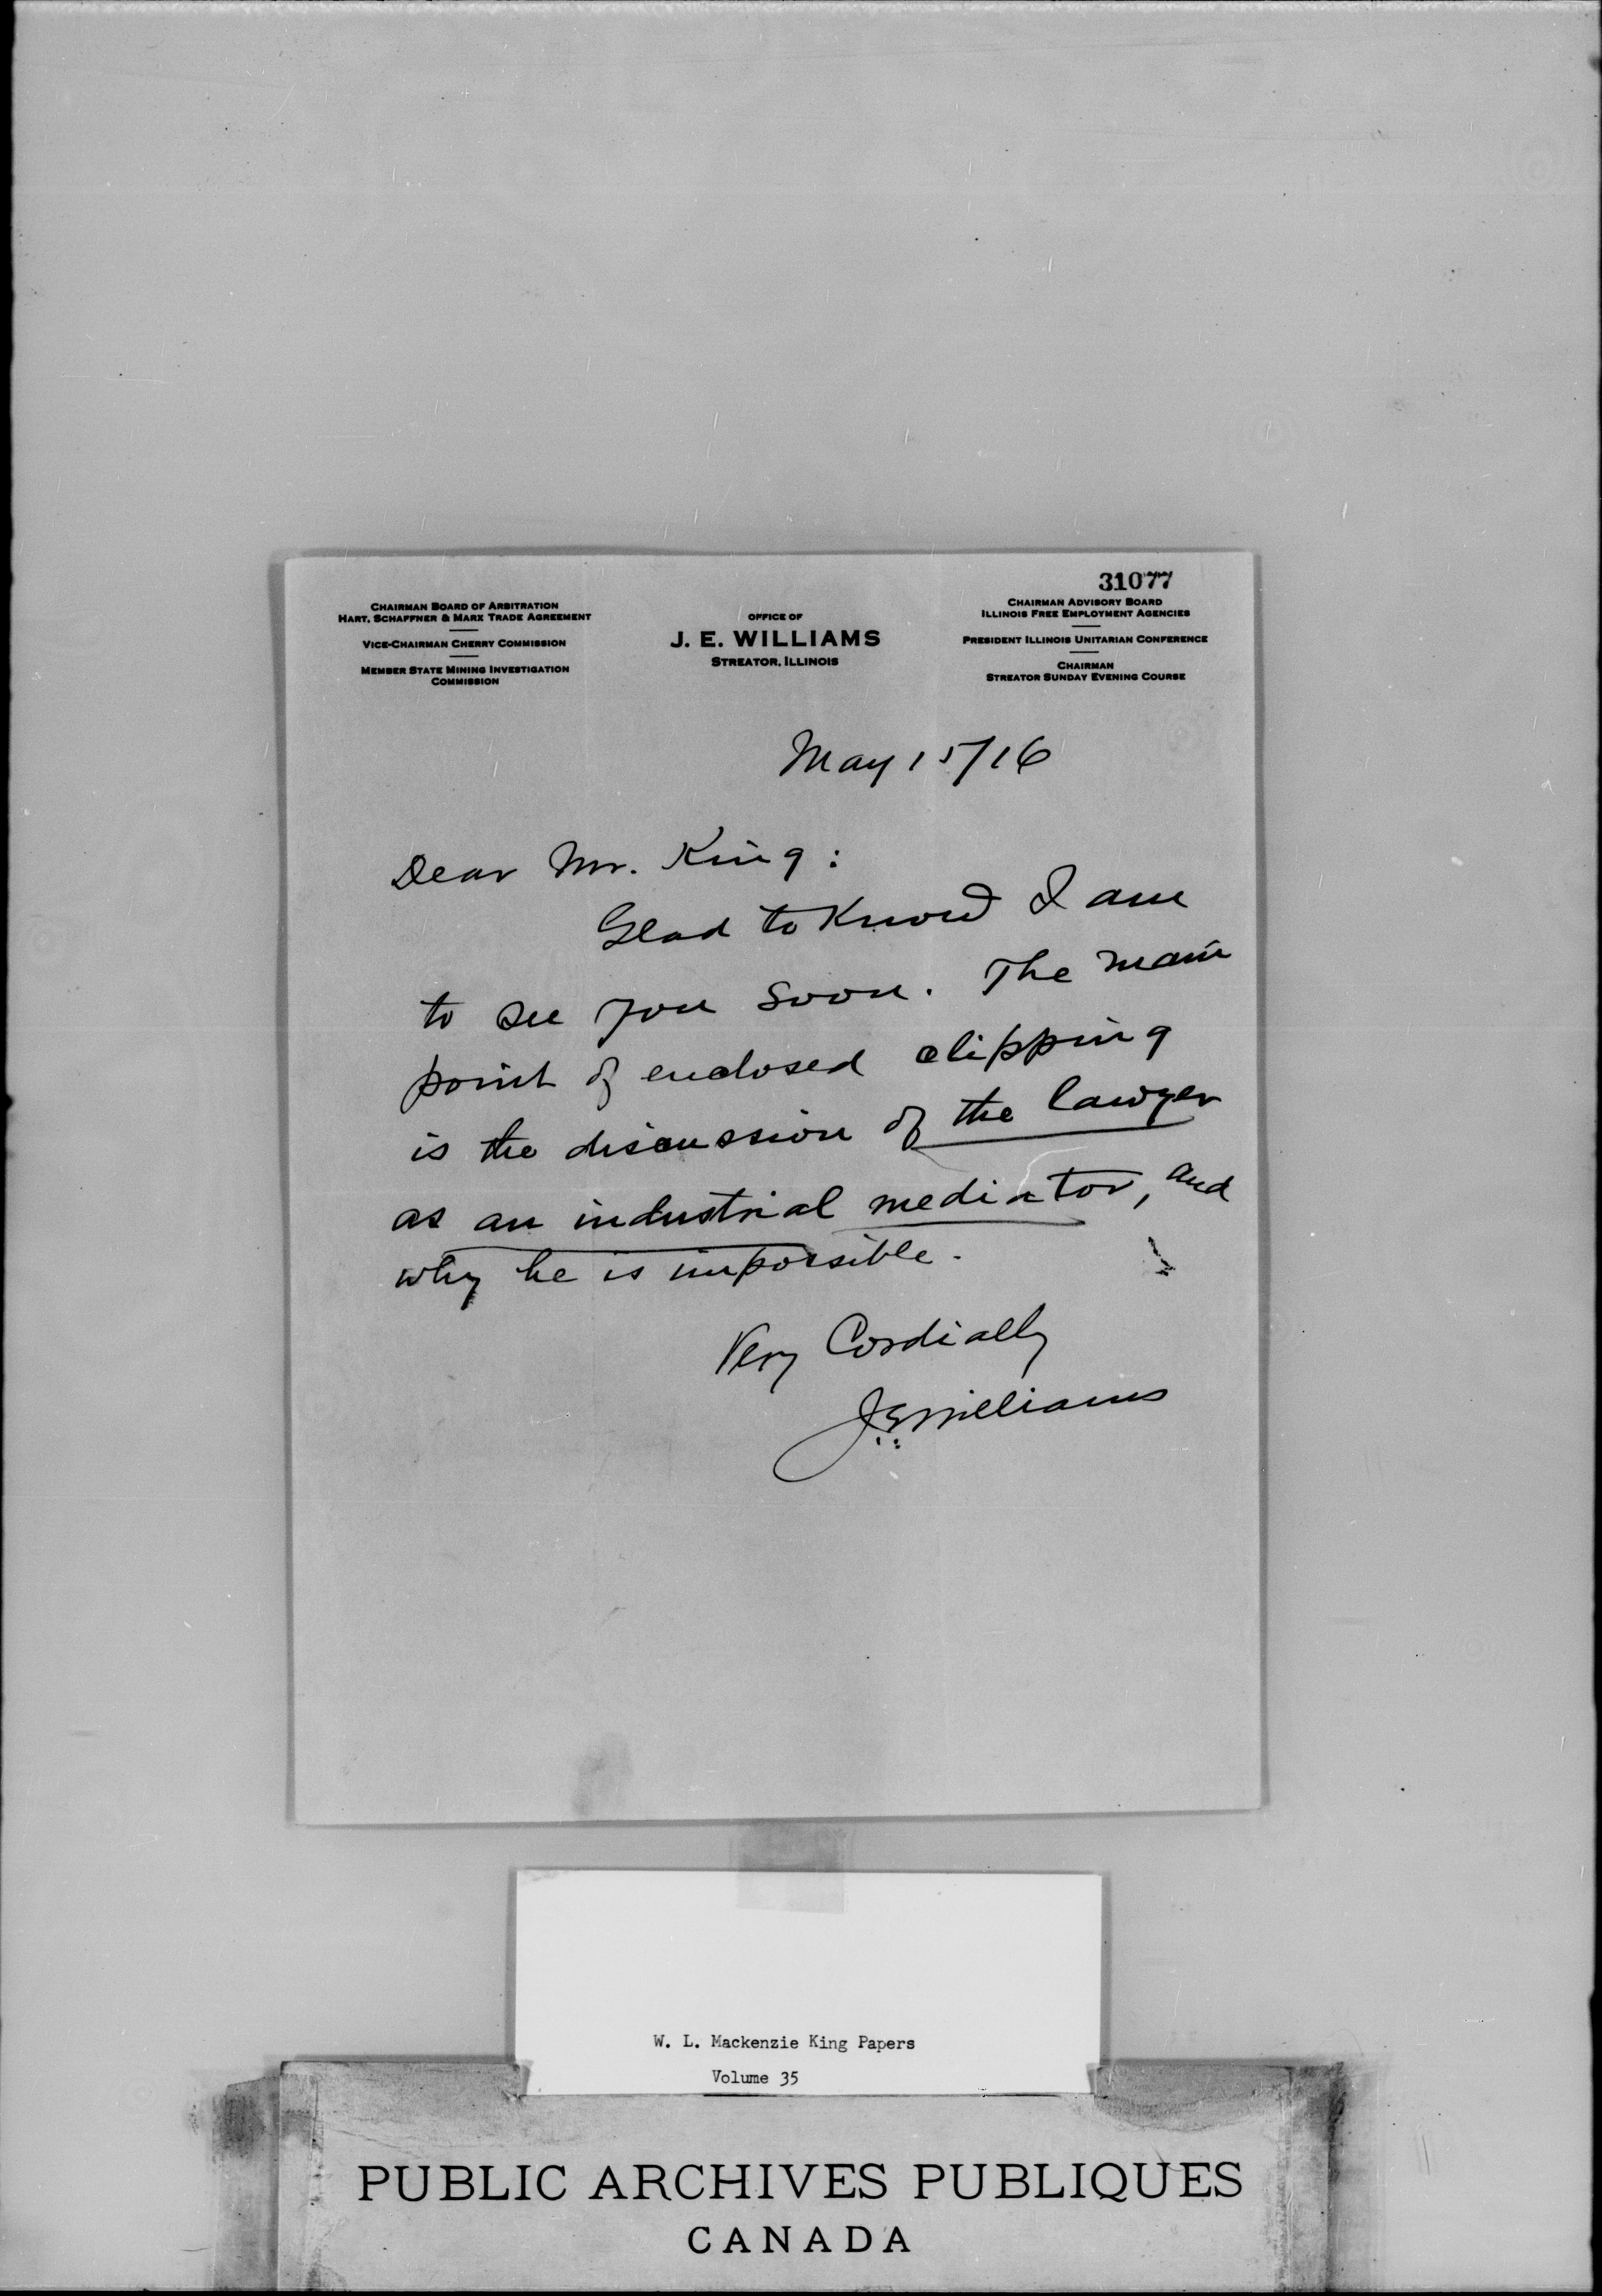 31077
CHAIRMAN BOARD OF ARBITRATION
HART, SCHAFFNER & MARX TRADE AGREEMENT
VICE-CHAIRMAN CHERRY COMMISSION
MEMBER STATE MINING INVESTIGATION
COMMISSION
OFFICE OF
J. E. WILLIAMS
STREATOR, ILLINOIS
CHAIRMAN ADVISORY BOARD
ILLINOIS FREE EMPLOYMENT AGENCIES
PRESIDENT ILLINOIS UNITARIAN CONFERENCE
CHAIRMAN
STREATOR SUNDAY EVENING COURSE
May 15/16
Dear Mr. King:
Glad to know I am
to see you soon. The main
point of enclosed clipping
is the discussion of the lawyer
as an industrial mediator, and
why he is impossible.
Very Cordially
J.E. Williams
W. L. Mackenzie King Papers
Volume 35
PUBLIC ARCHIVES PUBLIQUES
CANADA